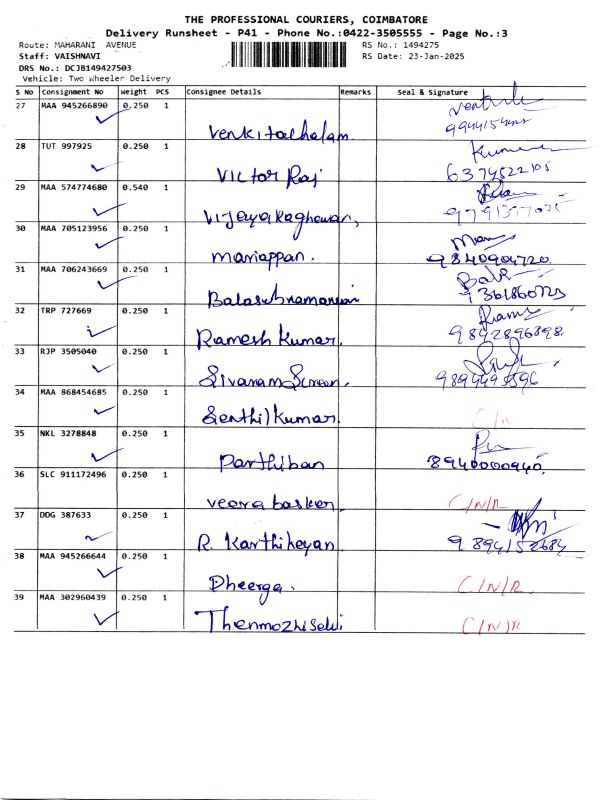 THE PROFESSIONAL COURIERS, COIMBATORE
Delivery Runsheet - P41 - Phone No.:0422-3505555 - Page No.:3
Route: MAHARANI AVENUE
RS No.: 1494275
Staff: VAISHNAVI
RS Date: 23-Jan-2025
DRS No.: DCJB149427503
Vehicle: Two Wheeler Delivery
S No Consignment No Weight PCS Consignee Details Remarks Seal & Signature
27 MAA 945266890 0.250 1
Venkitachalam
28 TUT 997925 0.250 1 Kumar
Victor Raj 6379522105
29 MAA 574774680 0.540 1
Vijayakaghavan,
30 MAA 705123956 0.250 1
mariappan. 9840904720
31 MAA 706243669 0.250 1
Balasubramanian
32 TRP 727669 0.250 1
Ramesh Kumar. 9842896898
33 RJP 3505040 0.250 1
Sivaram
34 MAA 868454685 0.250 1
Senthilkumar.
35 NKL 3278848 0.250 1
Parthiban 8940000940.
36 SLC 911172496 0.250 1
veera baskar C/N/R
37 DDG 387633 0.250 1
R. Karthikeyan
38 MAA 945266644 0.250 1
Dheerga. C/N/R.
39 MAA 302960439 0.250 1
Thenmozhiselvi C/N/R